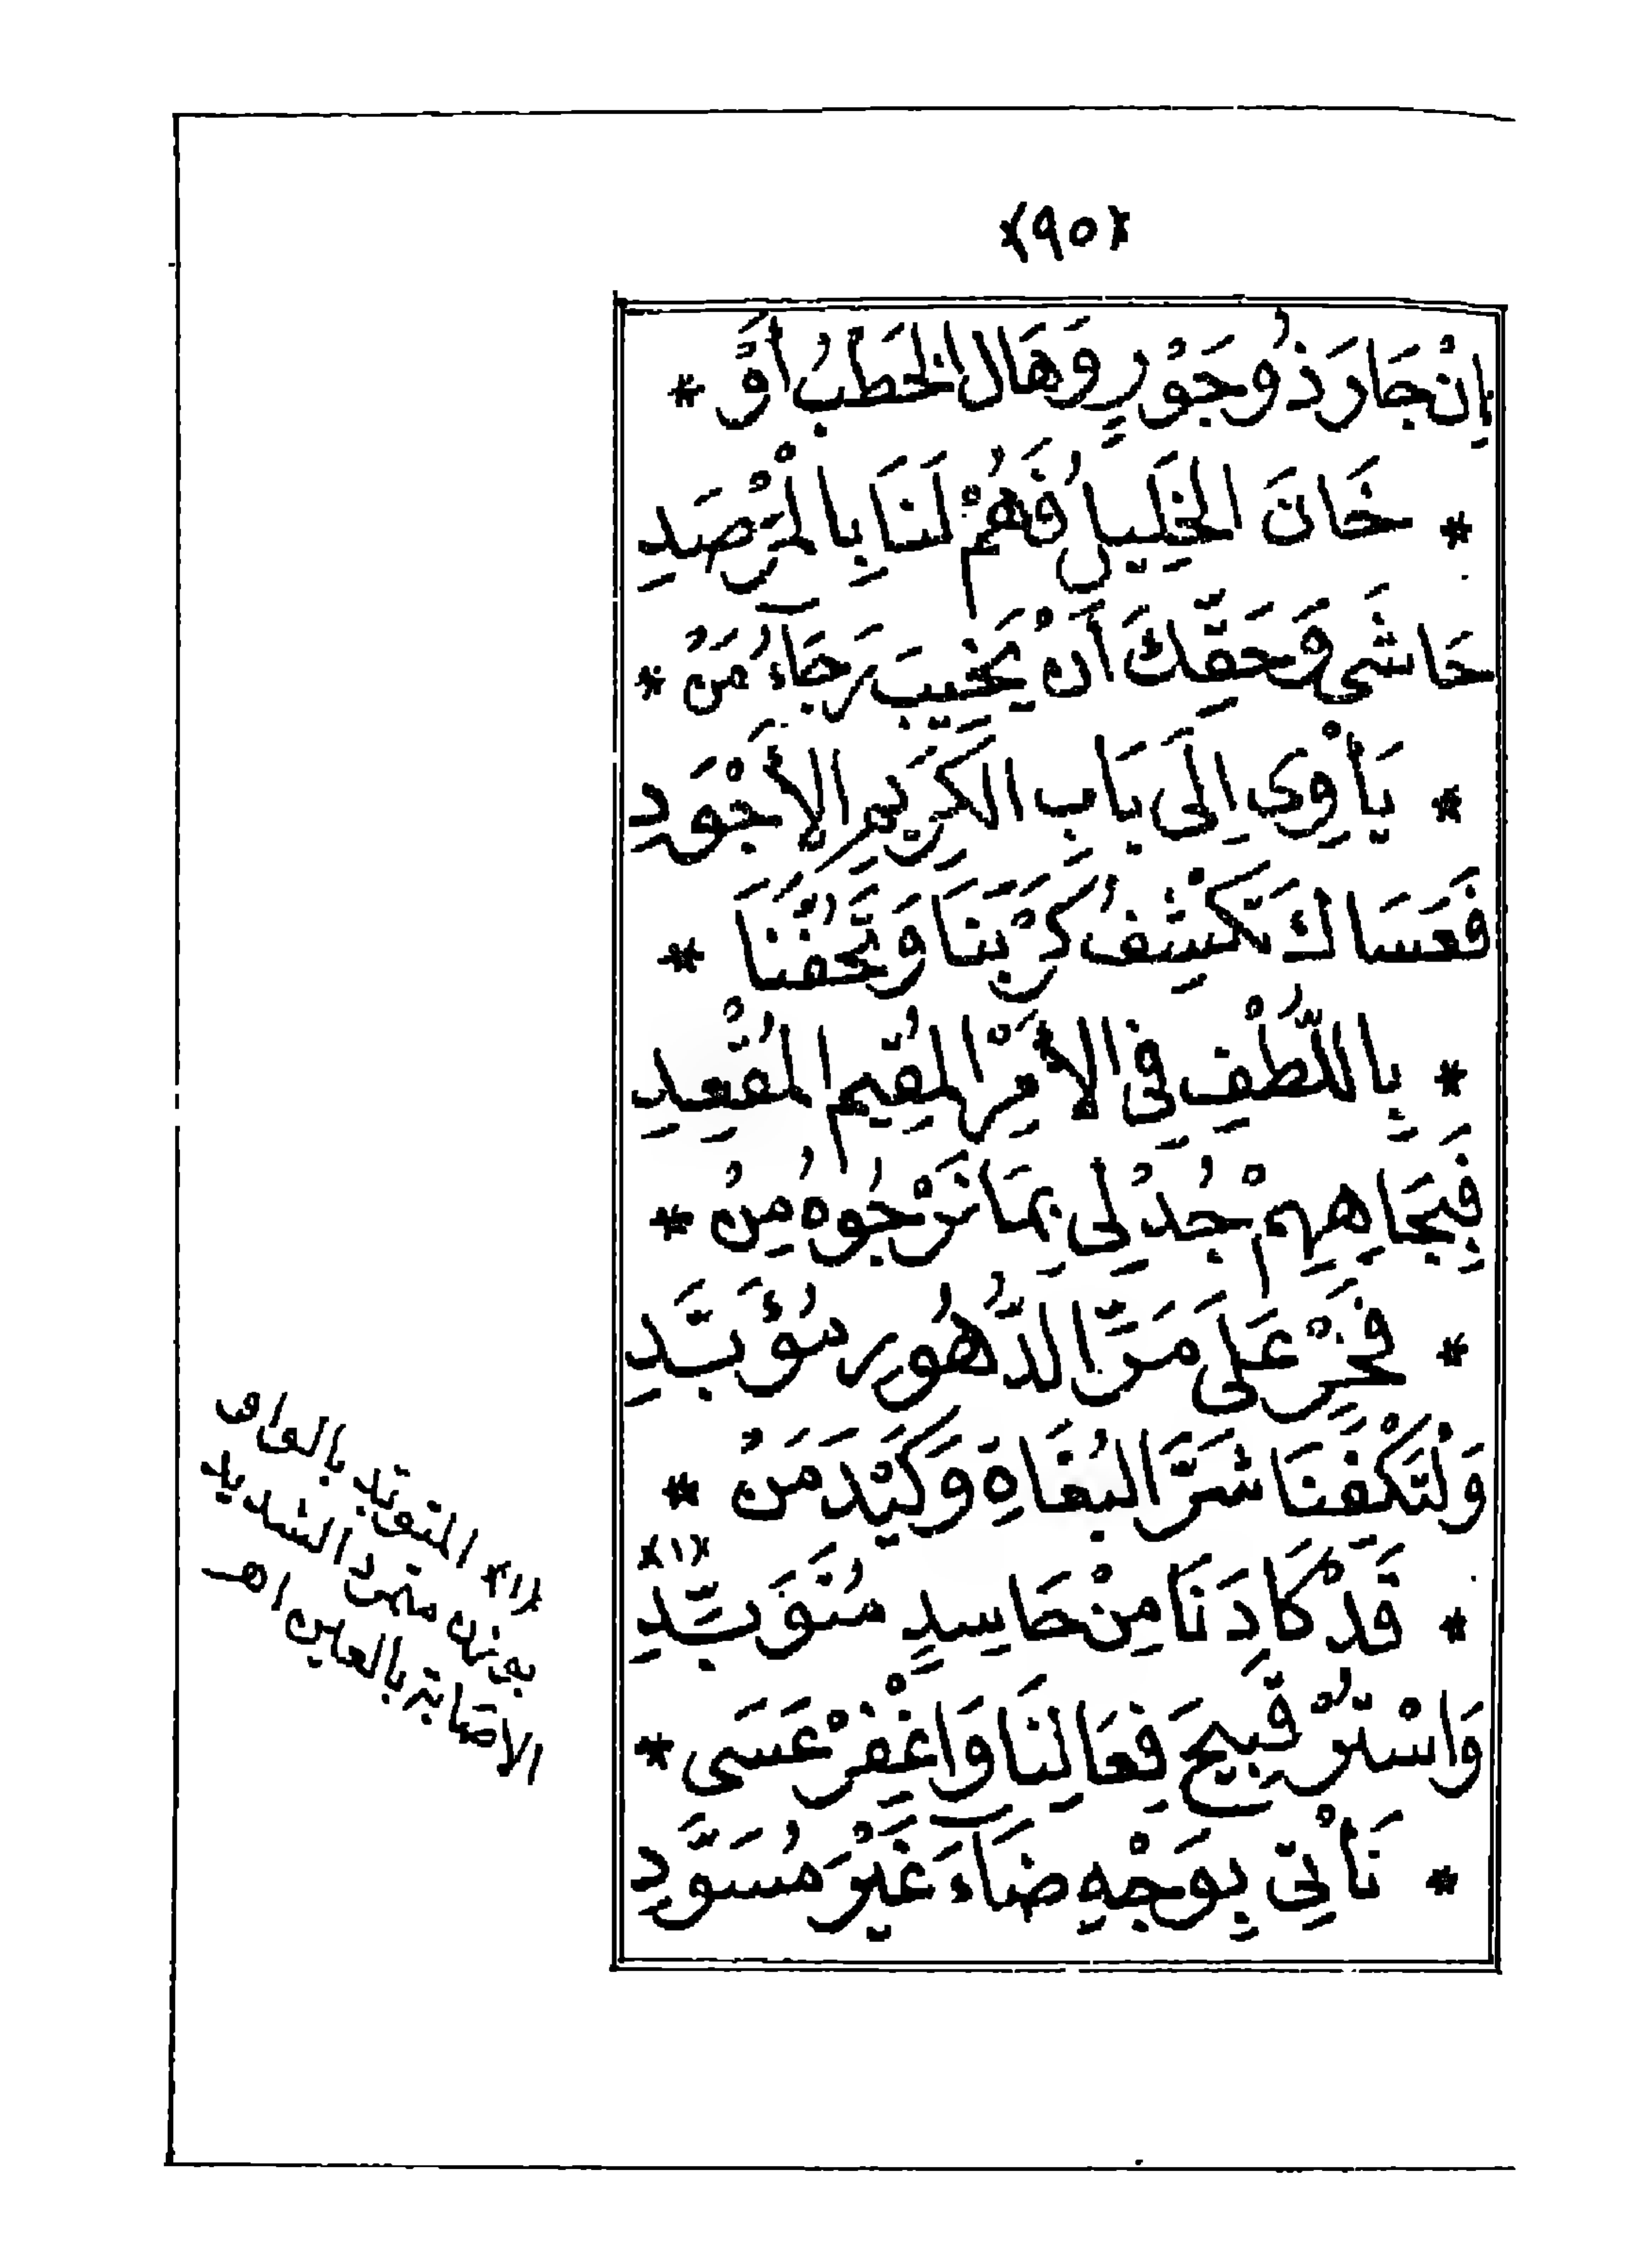 ﴿٩٥﴾
إِنْ جَارَ ذُو جَوْرٍ وَهَالَ الْخَطْبُ أَوْ *
* خَانَ الْخَلِيلُ فَهُمْ لَنَا بِالْمَرْصَدِ
حَاشَى وَحَقِّكَ أَنْ يَخِيبَ رَجَاءُ مَنْ *
* يَأْوِى إِلَى بَابِ الْكَرِيمِ الْأَجْوَدِ
فَعَسَاكَ تَكْشِفُ كَرْبَنَا وَتَحُفُّنَا *
* بِاللُّطْفِ فِى الْأَمْرِ الْمُقِيمِ الْمُقْعِدِ
فَبِجَاهِهِمْ جُدْ لِى بِمَا نَرْجُوهُ مِنْ *
* فَخْرٍ عَلَى مَرِّ الدُّهُورِ مُؤَبَّدِ
وَلْتَكْفِنَا شَرَّ الْبُغَاةِ وَكَيْدَ مَنْ *
* قَدْ كَادَنَا مِنْ حَاسِدٍ مُتَوَبِّدِ ﴿١﴾
وَاسْتُرْ قَبِيحَ فِعَالِنَا وَاغْفِرْ عَسَى *
* نَأْتِى بِوَجْهٍ ضَاءَ غَيْرَ مُسَوَّدِ
﴿١﴾ المتوبد بالواو
بوزن متمرد الشديد
الاصابة بالعين اهـ